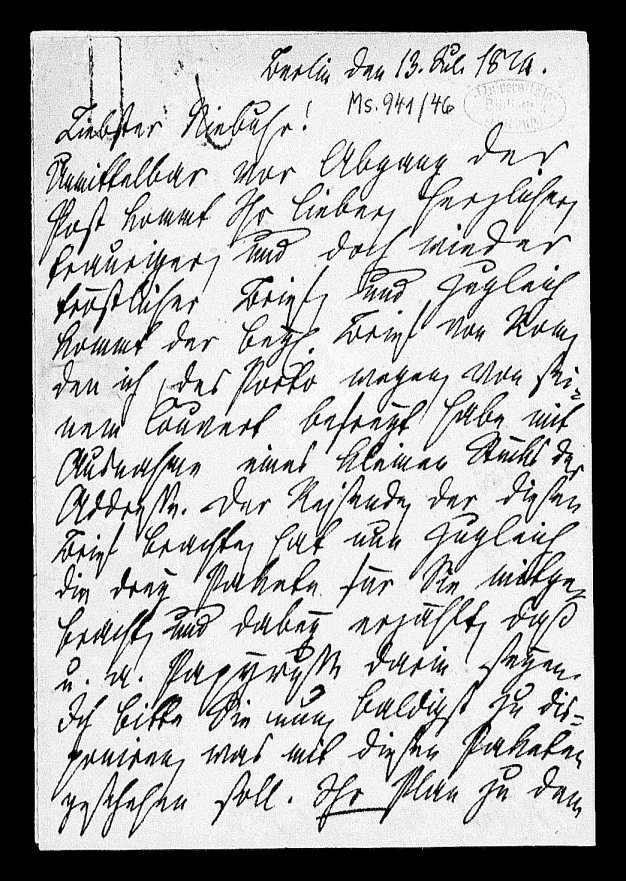 Berlin den 13. Jul. 1824.
Ms. 941/46
Liebster Niebuhr!
Unmittelbar vor Abgang der
Post kommt Ihr lieber, herzlicher,
trauriger, und doch wieder
tröstlicher Brief, und zugleich
kommt der beyl. Brief von Rom,
den ich des Porto wegen von sei-
nem Couvert befreyt habe mit
Ausnahme eines kleinen Stücks der
Addresse. Der Reisende, der diesen
Brief brachte, hat nun zugleich
die drey Pakete für Sie mitge-
bracht, und dabey erzählt, daß
u. a. Papyrusse darin seyen.
Ich bitte Sie nun, baldigst zu dis-
poniren, was mit diesen Paketen
geschehen soll. Ihr Plan zu dem